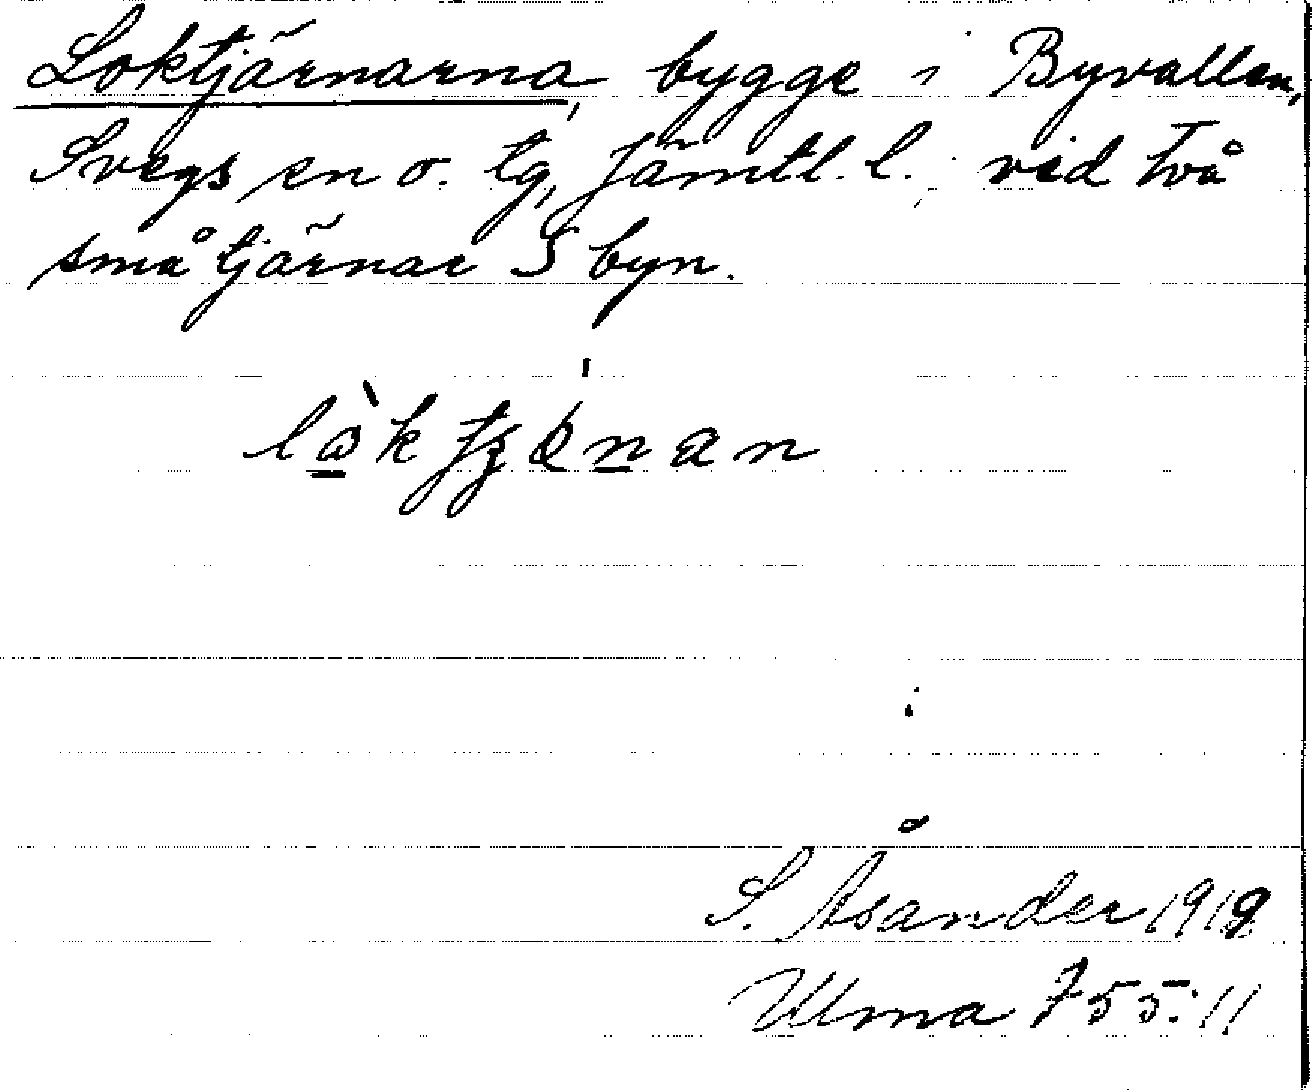 Loktjärnarna, bygge i Byvallen,
Svegs sn o. tg, Jämtl. l. vid två
små tjärnar S byn.
S. Åsander 1919
Ulma 755:11